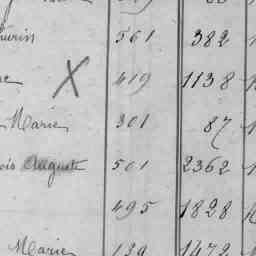 urin 561 382
X 419 1138
Marie 301 87
ois Auguste 501 2362
495 1828
Marie 139 1472